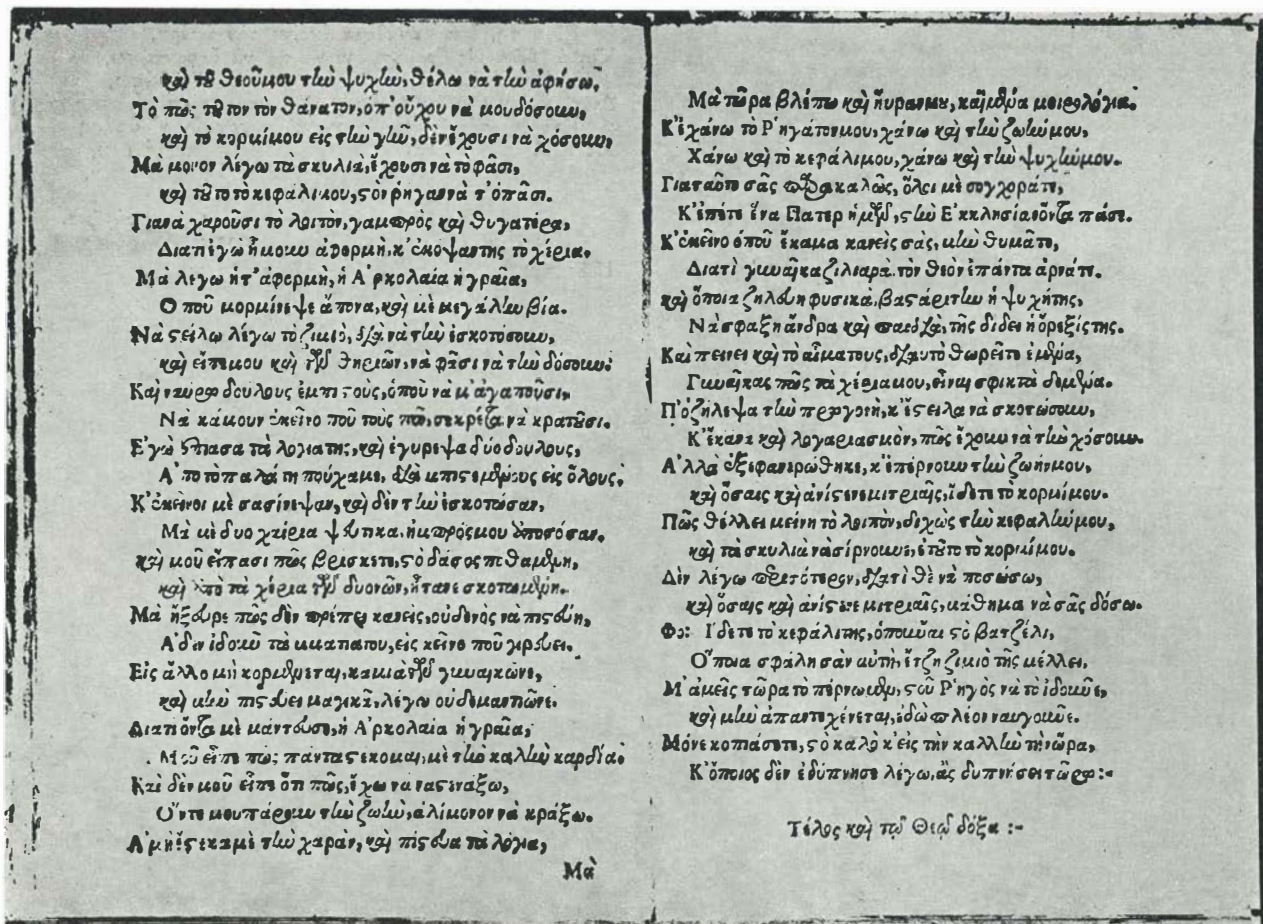 καὶ τοῦ θεοῦμου τὴν ψυχὴν, θέλω νὰ τὴν ἀφήσω,
Τὸ πῶς τοῦτον τὸν θάνατον, ὁπ' οὔχου νὰ μου δόσουν,
καὶ τὸ κορμίμου εἰς τὴν γῆν, δὲν ἔχουσι νὰ χόσουν,
Μὰ μονον λέγω τὰ σκυλιὰ, ἔχουσι νὰ τὸ φᾶσι,
καὶ τοῦτο τὸ κεφάλιμου, στὸν ρήγα νὰ τ' ὁπᾶσι.
Γιανὰ χαροῦσι τὸ λοιτὸν, γαμπρὸς καὶ θυγατέρα,
Διατι ἐγὼ ἤμουν ἀφορμὴ, κ' ἐκοψαντης τὸ χέρια.
Μὰ λεγω ἡτ' ἀφερμὴ, ἡ Ἀρκολαία ἡ γραῖα,
Ὁ ποῦ μορμίνεψε ἄπονα, καὶ μὲ μεγάλην βία.
Νὰ στείλω λέγω τὸ ζιμιὸ, διὰ νὰ τὴν ἐσκοτόσουν,
καὶ εἶπεμου καὶ τῶν θηριῶν, νὰ φᾶσι νὰ τὴν δόσουν:
Καὶ ναυρω δουλους ἐμπιστοὺς, ὁποῦ νὰ μ' ἀγαποῦσι,
Νὰ κάμουν ἐκεῖνο ποῦ τοὺς πῶ, σεκρέτα νὰ κρατοῦσι.
Ἐγὼ ἔπιασα τὰ λογιατης, καὶ ἐγυρεψα δύο δουλους,
Ἀπὸ τὸ παλάτη ποὔχαμε, διὰ μπιστεμένους εἰς ὅλους.
Κ' ἐκεῖνοι μὲ σασίνεψαν, καὶ δὲν τὴν ἐσκοτῶσαν,
Μὰ μὲ δυο χαίρια ψεύτικα, ἠμπρόςμου ἀποσόσαν.
καὶ μοῦ εἶπασι πῶς βρισκετε, στὸ δάσος πεθαμένη,
καὶ ἀπὸ τὰ χέρια τῶν δυονῶν, ἦτανε σκοτωμένη.
Μὰ ἤξευρε πῶς δὲν πρέπει κανεὶς, οὐδενὸς νὰ πιστεύη,
Ἀδεν ἰδοῦν τὰ μματιατου, εἰς κεῖνο ποῦ γιρεύει.
Εἰς ἄλλο μὴ κορμένεται, καμιὰ τῶν γυναικῶνε,
καὶ μὴν πιστεύει μαγικὰ, λέγω οὐδεμαντιῶνε.
Διατι ὄντα μὲ μάντευσε, ἡ Ἀρκολαία ἡ γραῖα,
Μοῦ εἶπε πως πάντα στεκομαι, μὲ τὴν καλὴν καρδία.
Καὶ δὲν μοῦ εἶπε ὅτι πῶς, ἔχω νὰ ναστενάξω,
Ὄντε μουπάρουν τὴν ζωὴν, ἀλίμονον νὰ κράξω.
Ἀμὴ ἔστεκα μὲ τὴν χαρὰν, καὶ πίστευα τὰ λόγια,
Μὰ
Μὰ τῶρα βλέπω καὶ ηὕρανμου, καϊμένα μοιρολόγια.
Κ' ἐχάνω τὸ Ῥηγάτονμου, χάνω καὶ τὴν ζωήνμου,
Χάνω καὶ τὸ κεφάλιμου, χάνω καὶ τὴν ψυχήνμου.
Γιαταῦτο σᾶς παρακαλῶ, ὅλοι μὲ συγχορᾶτε,
Κ' ἐπέτε ἕνα Πατερ ἡμῶν, στὴν Ἐκκλησίαν ὄντα πάτε.
Κ' ἐκεῖνο ὁποῦ ἔκαμα κανεὶς σᾶς, μὴν θυμᾶτε,
Διατὶ γυναῖκα ζιλιαρὰ, τὸν θεὸν ἐπάντα ἀρνᾶτε.
καὶ ὅποια ζηλεύη φυσικὰ, βαστάρι τὴν ἡ ψυχήτης,
Νὰ σφαξη ἄνδρα καὶ παιδιὰ, τῆς διδει ἡ ὄρεξίςτης.
Καὶ πεινει καὶ τὸ αἷματους, διαυτὸ θωρεῖτε ἐμένα,
Γυναῖκας πῶς τὰ χέριαμου, εἶναι σφικτὰ δεμένα.
Π' ὀζήλεψα τὴν προγονὴ, κ' ἔστειλα νὰ σκοτώσουν,
Κ' ἔκανα καὶ λογαριασμὸν, πῶς ἔχουν νὰ τὴν χόσουν.
Ἀλλὰ ἐξεφανερώθηκε, κ' ἐπέρνουν τὴν ζωήνμου,
καὶ ὅσαις καὶ ἀνίστενε μιτριαῖς, ἴδετε τὸ κορμίμου.
Πῶς θέλλει μείνη τὸ λοιπὸν, διχὼς τὴν κεφαλήνμου,
καὶ τὰ σκυλιὰ νὰ σίρνουνε, ἐτοῦτο τὸ κορμίμου.
Δὲν λέγω περιτότερον, διατὶ θὲ νὰ ποσώσω,
καὶ ὅσαις καὶ ἀνίστενε μιτριαῖς, μάθημα νὰ σᾶς δόσω.
Φο: Ἴδετε τὸ κεφάλιτης, ὁποῦναι στὸ βατζέλι,
Ὅποια σφάλη σὰν αὐτὴ, ἔτζη ζιμιὸ τῆς μέλλει.
Μ' ἀμεῖς τῶρα τὸ πέρνωμεν, στοῦ Ῥηγὸς νὰ τὸ ἰδοῦνε,
καὶ μὴν ἀπαντυχένεται, ἐδῶ πλέον ναυγοῦνε.
Μόνε κοπιάσετε, στὸ καλὸ κ' εἰς τὴν καλλὴν τὴν ὥρα,
Κ' ὅποιος δὲν ἐδύπνησε λέγω, ἂς δυπνήσει τῶρα:-
Τέλος καὶ τῷ Θεῷ δόξα :-